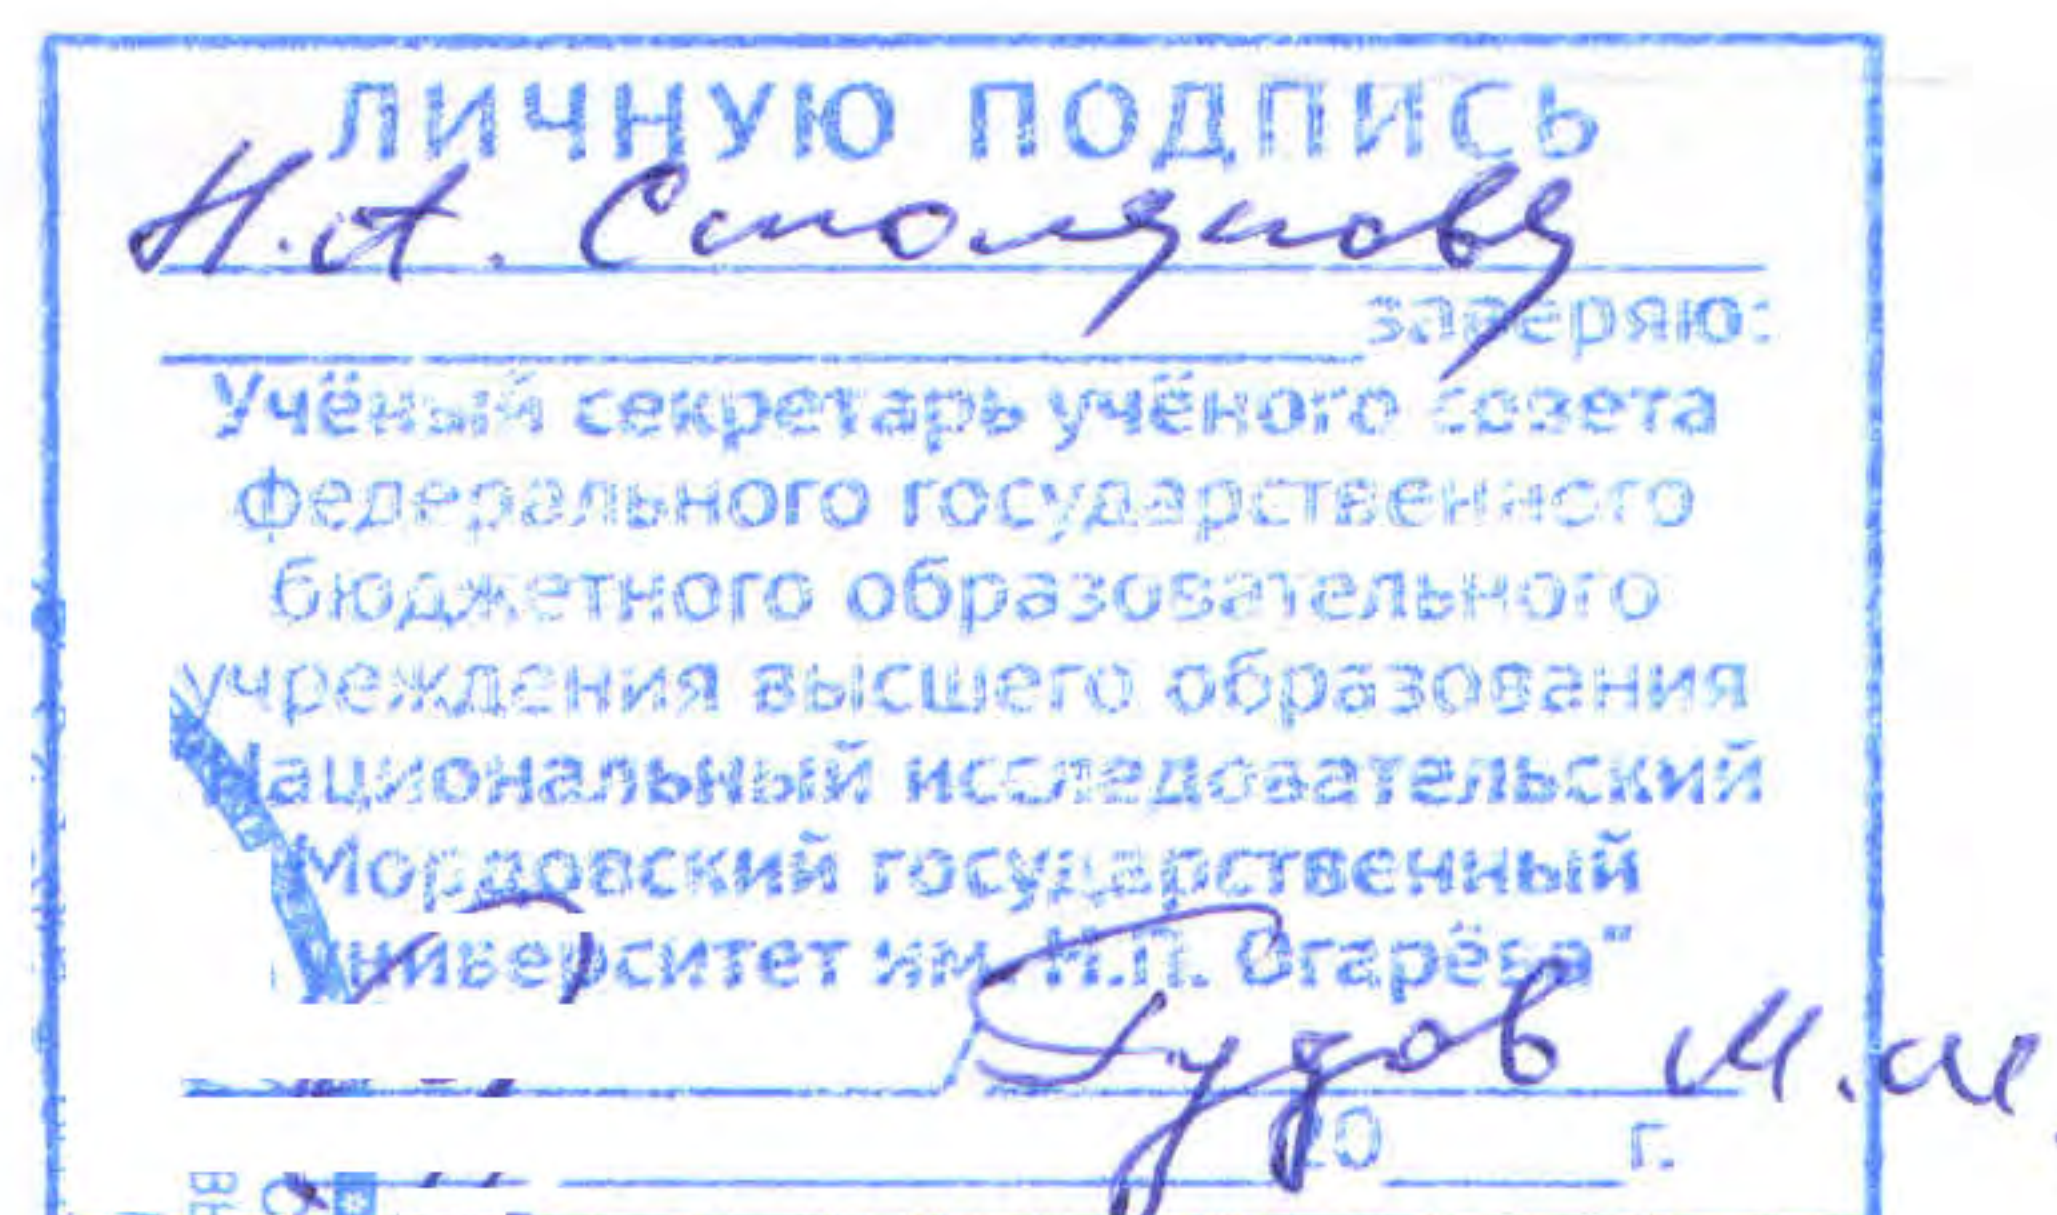 ЛИЧНУЮ ПОДПИСЬ
Н.А.
заверяю:
Учёный секретарь учёного совета
федерального государственного
бюджетного образовательного
учреждения высшего образования
Национальный исследовательский
Мордовский государственный
университет им. Н.П. Огарёва"
Гудов М.М.
20 г.